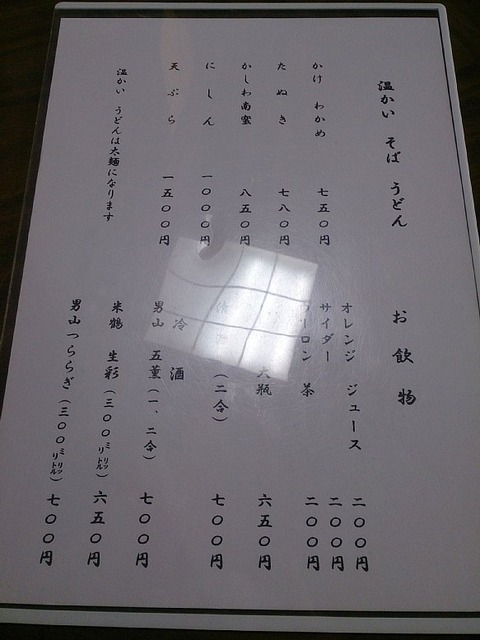 温かい そば うどん
かけ わかめ 七五〇円
たぬき 七八〇円
かしわ南蛮 八五〇円
にしん 一〇〇〇円
天ぷら 一五〇〇円
温かい うどんは太麺になります
お飲物
オレンジ ジュース 二〇〇円
サイダー 二〇〇円
ーロン茶 二〇〇円
大瓶 六五〇円
(二合) 七〇〇円
冷酒
男山 五薫(一、二合) 七〇〇円
米鶴 生彩(三〇〇ミリリットル) 六五〇円
男山つららぎ(三〇〇ミリリットル) 七〇〇円